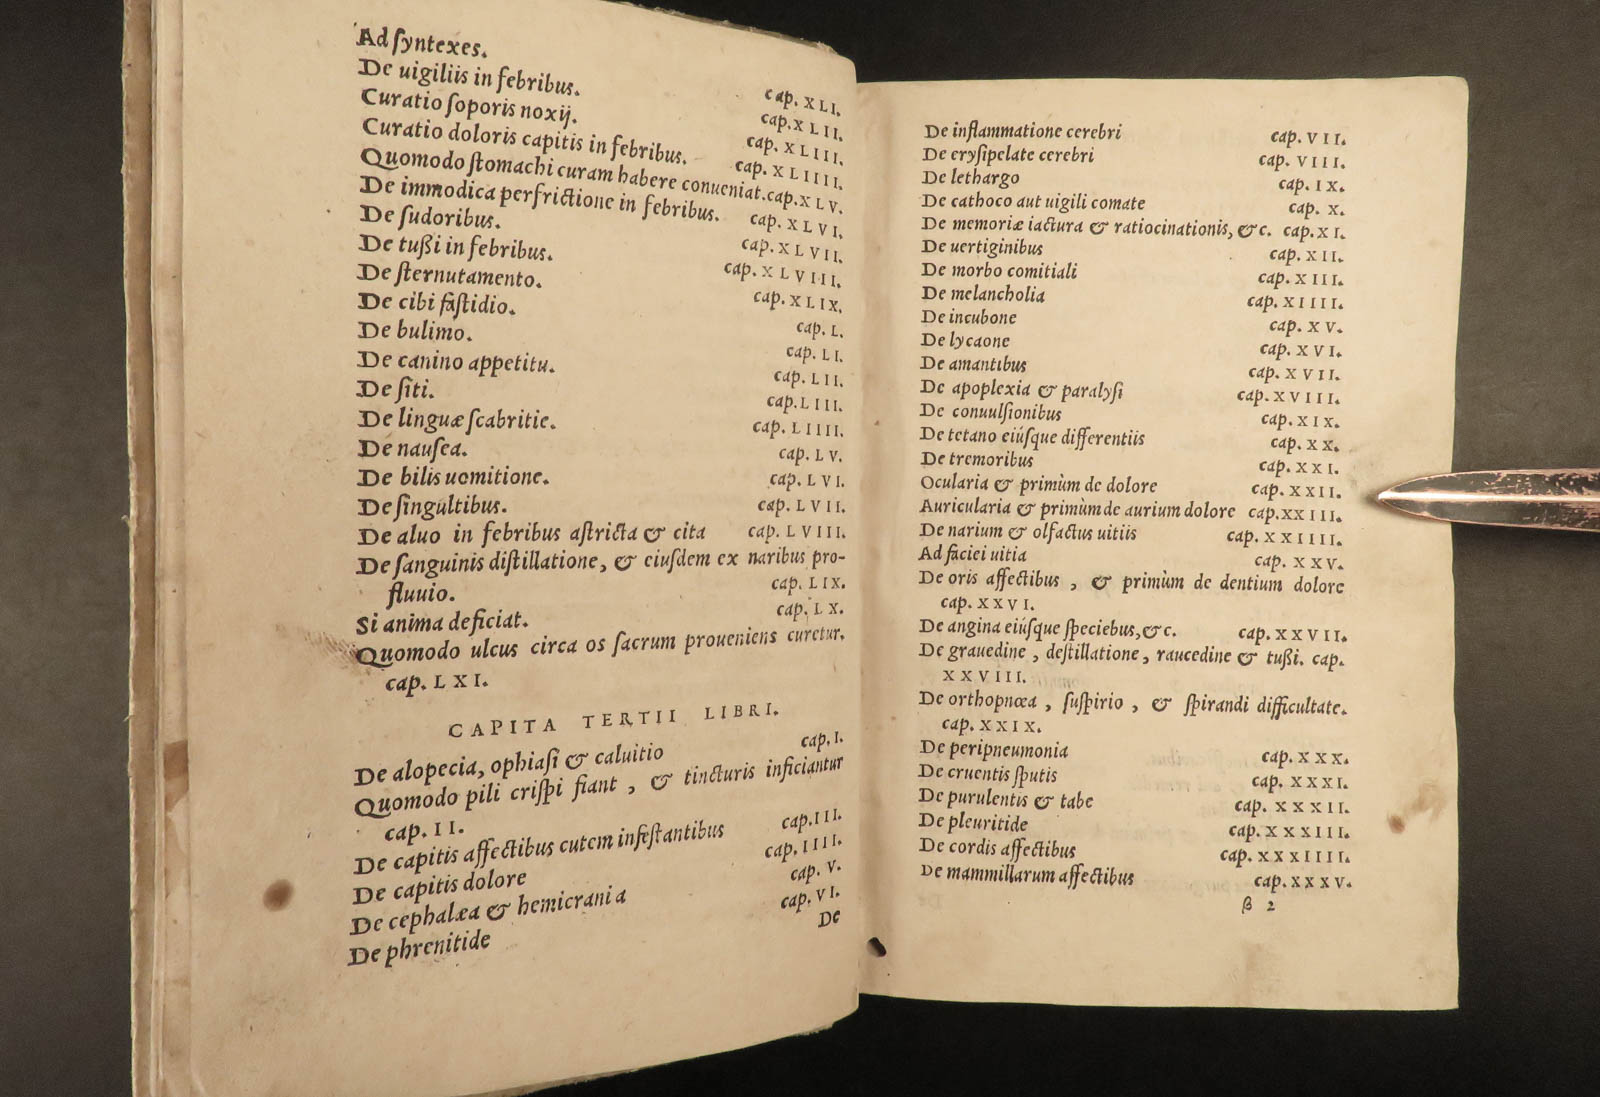 Ad ſyntexes. cap. XLI.
De uigiliis in febribus. cap. XLII.
Curatio ſoporis noxij. cap. XLIII.
Curatio doloris capitis in febribus. cap. XLIIII.
Quomodo ſtomachi curam habere conueniat. cap. XLV.
De immodica perfrictione in febribus. cap. XLVI.
De ſudoribus. cap. XLVII.
De tußi in febribus. cap. XLVIII.
De ſternutamento. cap. XLIX.
De cibi faſtidio. cap. L.
De bulimo. cap. LI.
De canino appetitu. cap. LII.
De ſiti. cap. LIII.
De linguæ ſcabritie. cap. LIIII.
De nauſea. cap. LV.
De bilis uomitione. cap. LVI.
De ſingultibus. cap. LVII.
De aluo in febribus aſtricta & cita cap. LVIII.
De ſanguinis diſtillatione, & eiuſdem ex naribus pro-
fluuio. cap. LIX.
Si anima deficiat. cap. LX.
Quomodo ulcus circa os ſacrum proueniens curetur.
cap. LXI.
CAPITA TERTII LIBRI.
De alopecia, ophiaſi & caluitio cap. I.
Quomodo pili criſpi fiant, & tincturis inficiantur
cap. II.
De capitis affectibus cutem infeſtantibus cap. III.
De capitis dolore cap. IIII.
De cephalæa & hemicrania cap. V.
De phrenitide cap. VI.
De
De inflammatione cerebri cap. VII.
De eryſipelate cerebri cap. VIII.
De lethargo cap. IX.
De cathoco aut uigili comate cap. X.
De memoriæ iactura & ratiocinationis, &c. cap. XI.
De uertiginibus cap. XII.
De morbo comitiali cap. XIII.
De melancholia cap. XIIII.
De incubone cap. XV.
De lycaone cap. XVI.
De amantibus cap. XVII.
De apoplexia & paralyſi cap. XVIII.
De conuulſionibus cap. XIX.
De tetano eiúſque differentiis cap. XX.
De tremoribus cap. XXI.
Ocularia & primùm de dolore cap. XXII.
Auricularia & primùm de aurium dolore cap. XXIII.
De narium & olfactus uitiis cap. XXIIII.
Ad faciei uitia cap. XXV.
De oris affectibus, & primùm de dentium dolore
cap. XXVI.
De angina eiúſque ſpeciebus, &c. cap. XXVII.
De grauedine, deſtillatione, raucedine & tußi. cap.
XXVIII.
De orthopnœa, ſuſpirio, & ſpirandi difficultate.
cap. XXIX.
De peripneumonia cap. XXX.
De cruentis ſputis cap. XXXI.
De purulentis & tabe cap. XXXII.
De pleuritide cap. XXXIII.
De cordis affectibus cap. XXXIIII.
De mammillarum affectibus cap. XXXV.
β 2